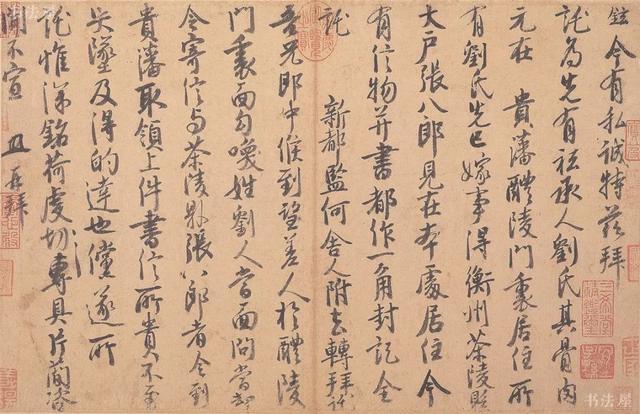 鉉今有私誠特茲拜
託為先有祗承人劉氏其骨肉
元在貴藩醴陵門裏居住所
有劉氏先已嫁事得衡州茶陵縣
大户張八郎見在本處居住今
有信物并書都作一角封記全
託
新都監何舍人附去轉拜託
吾兄郎中候到望差人於醴陵
門裏面勾喚姓劉人當面問當却
令寄信与茶陵縣張八郎者令到
貴藩取領上件書信所貴不至
失墜及得的達也儻遂所
託惟深銘荷虔切專具片簡咨
聞不宣 再拜
书法屋
书法屋